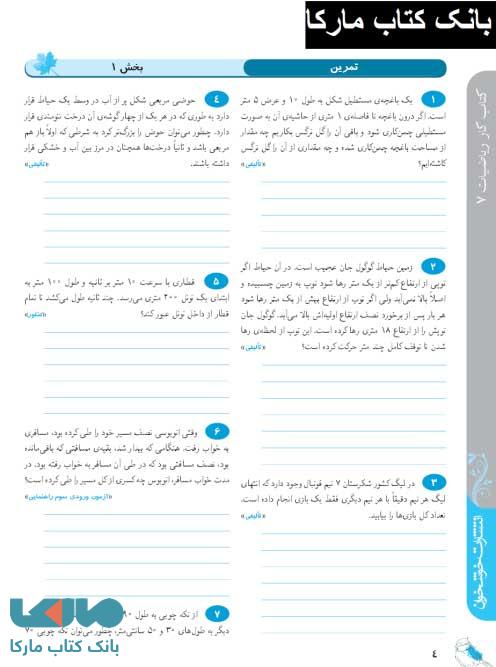 بانک کتاب مارکا
تمرین
بخش ۱
۱ یک باغچه‌ی مستطیل شکل به طول ۱۰ و عرض ۵ متر
است. اگر درون باغچه تا فاصله‌ی ۱ متری از حاشیه‌ی آن به صورت
مستطیلی چمن‌کاری شود و باقی آن را گل نرگس بکاریم چه مقدار
از مساحت باغچه چمن‌کاری شده و چه مقداری از آن را گل نرگس
کاشته‌ایم؟ «تألیفی»
۲ زمین حیاط گوگول جان عجیب است. در آن حیاط اگر
توپی از ارتفاع کم‌تر از یک متر رها شود توپ به زمین چسبیده و
اصلاً بالا نمی‌آید ولی اگر توپ از ارتفاع بیش از یک متر رها شود
هر بار پس از برخورد نصف ارتفاع اولیه‌اش بالا می‌آید. گوگول جان
توپش را از ارتفاع ۱۸ متری رها کرده است. این توپ از لحظه‌ی رها
شدن تا توقف کامل چند متر حرکت کرده است؟ «تألیفی»
۳ در لیگ کشور شکرستان ۷ تیم فوتبال وجود دارد که تا انتهای
لیگ هر تیم دقیقاً با هر تیم دیگری فقط یک بازی انجام داده است.
تعداد کل بازی‌ها را بیابید. «تألیفی»
۴ حوضی مربعی شکل پر از آب در وسط یک حیاط قرار
دارد به طوری که در هر یک از چهار گوشه‌ی آن درخت تنومندی قرار
دارد. چطور می‌توان حوض را بزرگ‌تر کرد به شرطی که اولاً باز هم
مربعی باشد و ثانیاً درخت‌ها همچنان در مرز بین آب و خشکی قرار
داشته باشند. «تألیفی»
۵ قطاری با سرعت ۱۰ متر بر ثانیه و طول ۱۰۰ متر به
ابتدای یک تونل ۲۰۰ متری می‌رسد. چند ثانیه طول می‌کشد تا تمام
قطار از داخل تونل عبور کند؟ «کانگورو»
۶ وقتی اتوبوسی نصف مسیر خود را طی کرده بود، مسافری
به خواب رفت. هنگامی که بیدار شد، بقیه‌ی مسافتی که باقی‌مانده
بود، نصف مسافتی بود که در طی آن مسافر به خواب رفته بود. در
مدت خواب مسافر، اتوبوس چه کسری از کل مسیر را طی کرده است؟
«آزمون ورودی سوم راهنمایی»
۷ از تکه چوبی به طول ۹۰
دیگر به طول‌های ۳۰ و ۵۰ سانتی‌متر، چطور می‌توان تکه چوبی ۷۰
کتاب کار ریاضیات ۷
۴
مارکا
بانک کتاب مارکا